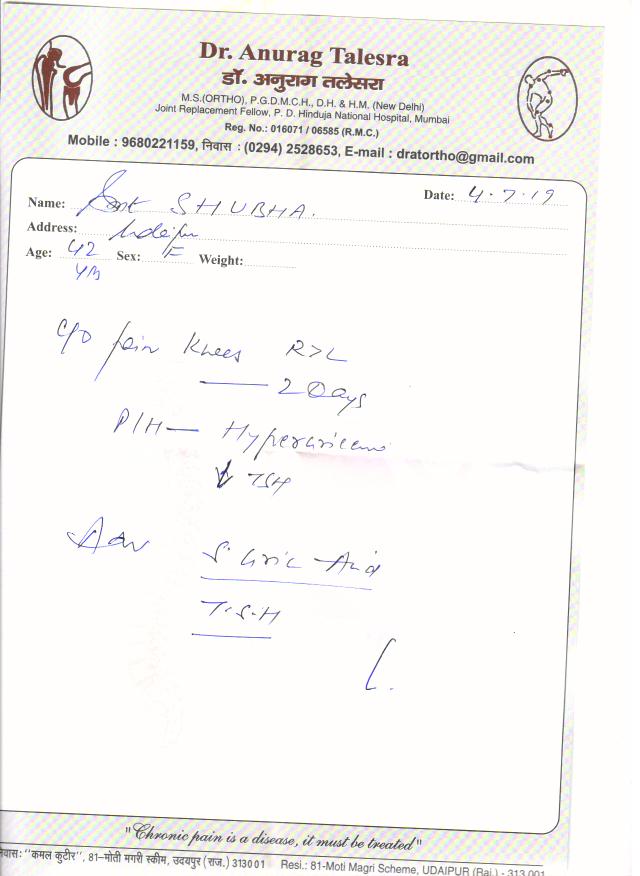 Dr. Anurag Talesra
डॉ. अनुराग तलेसरा
M.S.(ORTHO), P.G.D.M.C.H., D.H. & H.M. (New Delhi)
Joint Replacement Fellow, P. D. Hinduja National Hospital, Mumbai
Reg. No.: 016071 / 06585 (R.M.C.)
Mobile : 9680221159, निवास : (0294) 2528653, E-mail : dratortho@gmail.com
Date: 4.7.19
Name: Smt SHUBHA.
Address: Udaipur
Age: 42 Sex: F Weight:
Yrs
C/O Pain Knees R>L
— 2 Days
P/H — Hyperuricemia
↓ TSH
Adv S. Uric Acid
T.S.H
"Chronic pain is a disease, it must be treated"
निवास: "कमल कुटीर", 81-मोती मगरी स्कीम, उदयपुर (राज.) 313001 Resi.: 81-Moti Magri Scheme, UDAIPUR (Raj.) - 313 001